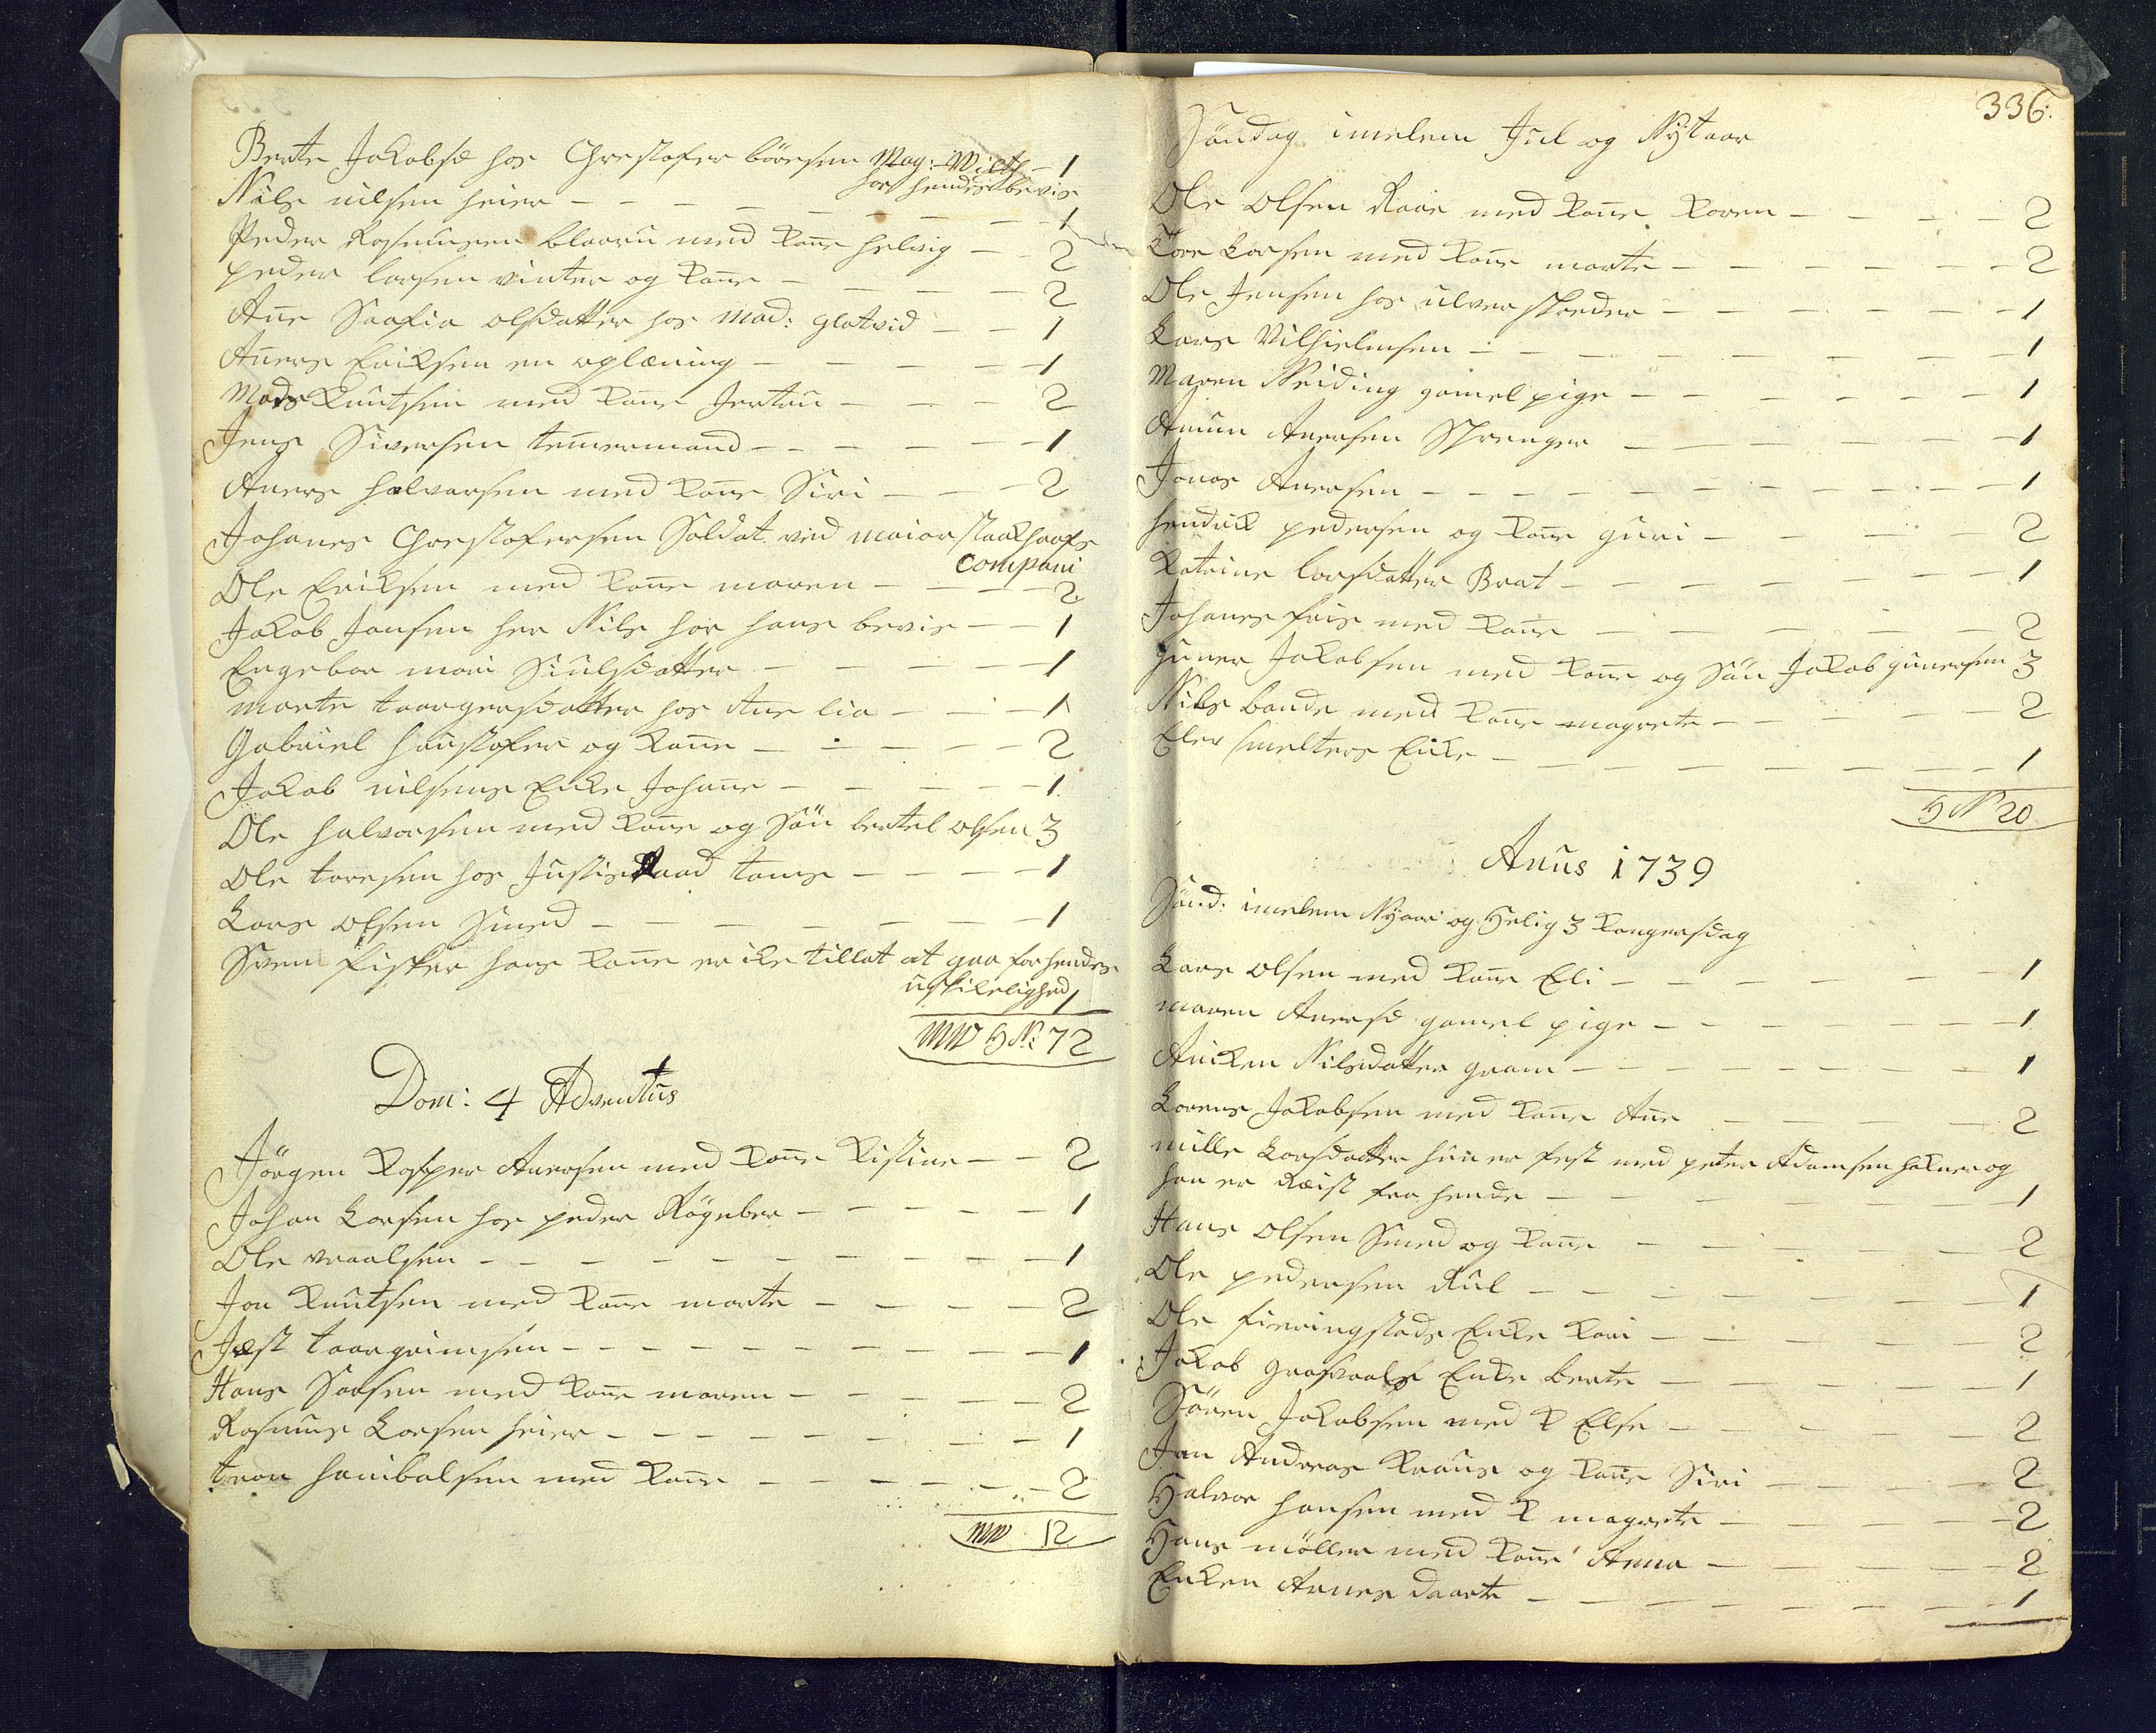 Berte Jakobsd hos Chrestofer börsen Mag: Wilth — 1
har hendes bevis
Nils nilsen heier — 1
Peder Rasmusen blaaru med kone helvig — 2
peder larsen vinter og kone — 2
Ane Saafia olsdatter hos Mad: glatvid — 1
Aners Eriksen en oplæning — 1
Mads Knutsen med kone Jertru — 2
Jens Siversen temermand — 1
Aners halvorsen med kone Siri — 2
Johanes Chrestofersen Soldat ved maior staakhoofs
Compani
Ole Eriksen med kone maren — 2
Jakob Jansen her Nils har hans bevis — 1
Engebor mari Siulsdatter — 1
marte taargersdatter hos Ane lia — 1
Gabriel hanstofer og kone — 2
Jakob nilsens Enke Johane — 1
Ole halvorsen med kone og Sön bertel olsen 3
Ole toresen hos Justisraad toms — 1
Lars olsen Smed — 1
Sven fisker hans kone er ike tillat at gaa for hendes
uskikelighed 1
MW H N: 72
Dom: 4 Adventus
Jörgen Kasper Anersen med kone Kistine — 2
Johan Larsen hos peder Rögeber — 1
Ole vraalsen — 1
Jon Knutsen med kone marte — 2
Jæst taargrimsen — 1
Hans Saasen med kone maren — 2
Rasmus Larsen heier — 1
tron hanibalsen med kone — 2
MW 12
336:
Söndag imelem Jul og Nytaar
Ole Olsen Raae med kone Karen — 2
Tore Larsen med kone marte — 2
Ole Jensen hos ulver skreder — 1
Lars Vilhielmsen — 1
Maren Neiding gamel pige — 1
Amun Anersen Sprenger — 1
Jonas Anersen — 1
hendrik pedersen og kone guri — 2
Katrine larsdatter Brat — 1
Johanes friis med kone — 2
guner Jakobsen med kone og Sön Jakob gunersen 3
Nils bande med kone magrete — 2
Eler smelters Enke — 1
H N 20
Anus 1739
Sönd: imelem Nyaar og Helig 3 kongersdag
Lars olsen med kone Eli — 1
maren Anersd gamel pige — 1
Aniken Nilsdatter gram — 1
Lorens Jakobsen med kone Ane — 2
nille Larsdatter hun er fest med peter Adamsen hakner og
han er Reist fra hende — 1
Hans olsen Smed og kone — 2
Ole pedersen Rul — 1
Ole fieringstads Enke kari — 2
Jakob grasvaals Enke berte — 1
Sören Jakobsen med K Else — 2
Jan Andreas Kraus og kone Siri — 2
Halvor hansen med K magrete — 2
Hans möller med kone Anna — 2
Enken Anners daarte — 1